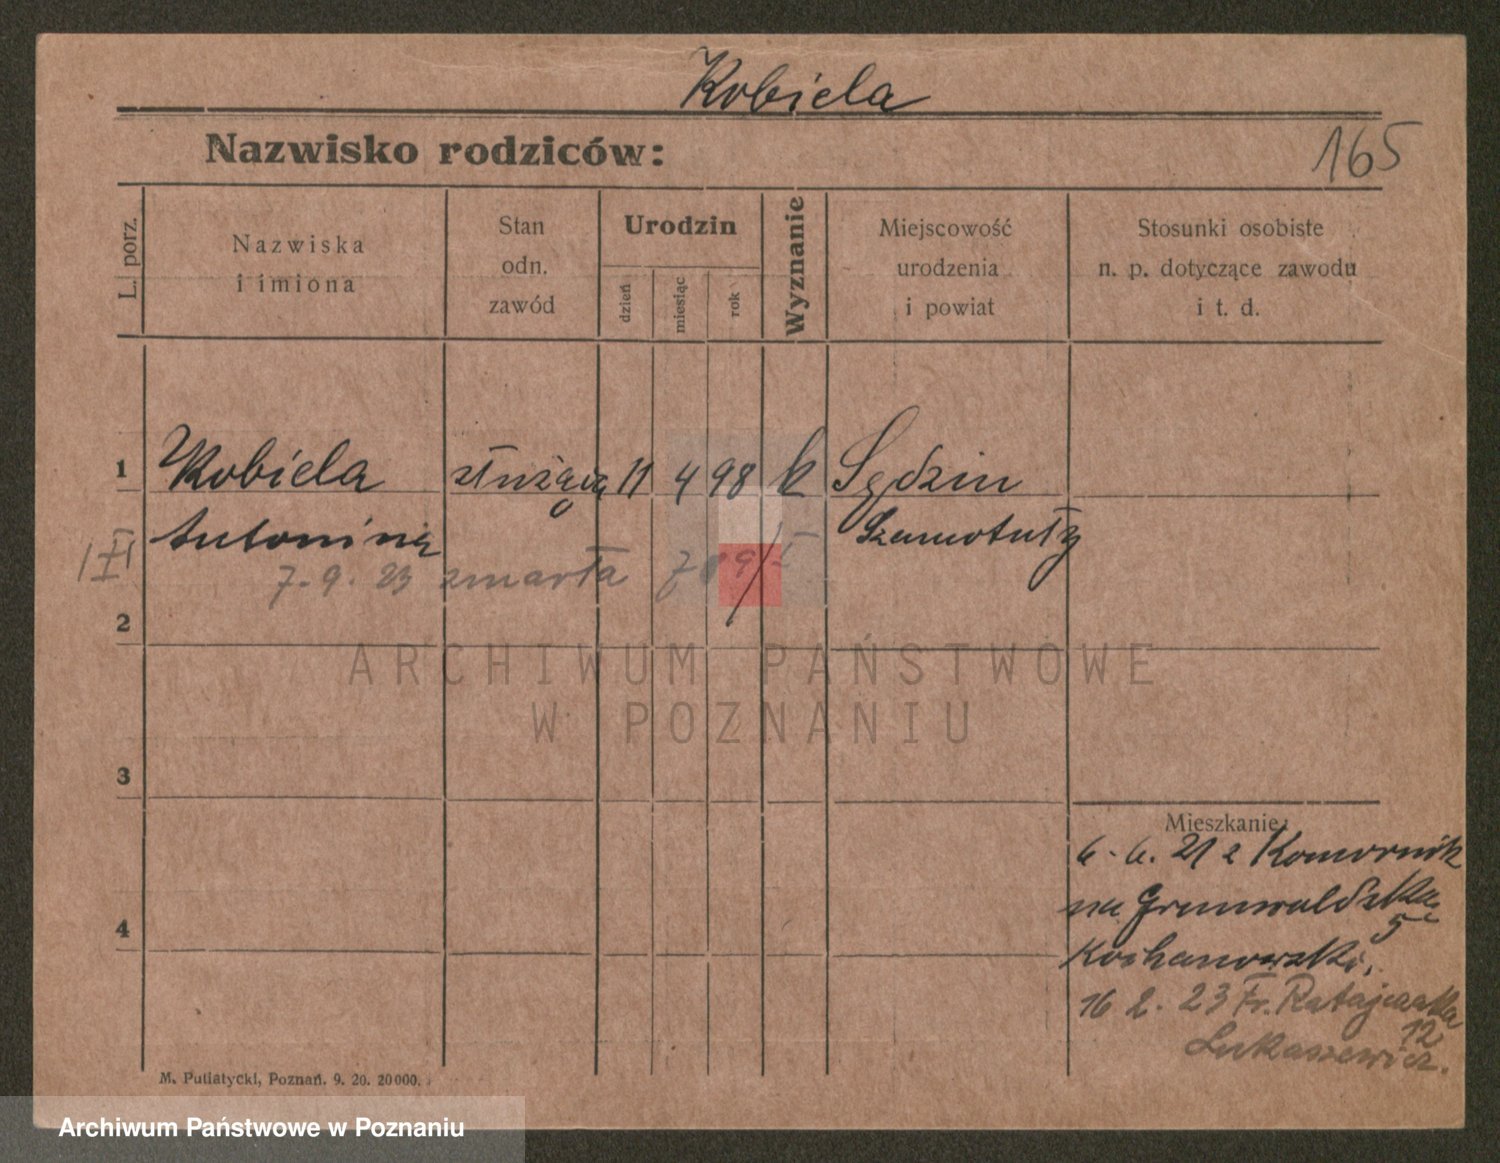 Kobiela
Nazwisko rodziców:
165
L. porz.
Nazwiska
i imiona
Stan
odn.
zawód
Urodzin
dzień
miesiąc
rok
Wyznanie
Miejscowość
urodzenia
i powiat
Stosunki osobiste
n. p. dotyczące zawodu
i t. d.
1 Kobiela służąca 11 4 98 k Sędzin
Antonina Szamotuły
7. 9. 23 zmarła
2
ARCHIWUM PAŃSTWOWE
W POZNANIU
3
4
Mieszkanie:
6. 6. 21 z Komornik
na Grunwaldzka
5
Kochanowski.
16 2. 23 Fr. Ratajczaka
12
Łukaszewicz.
M. Putiatycki, Poznań. 9. 20. 20000.
Archiwum Państwowe w Poznaniu